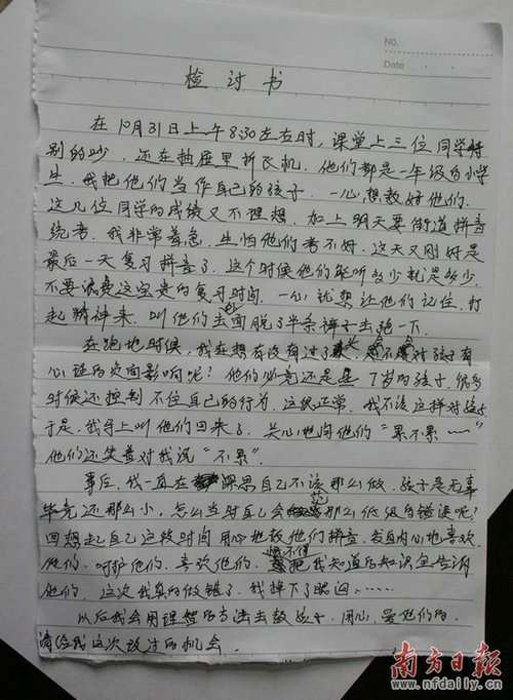 No.
Date
检讨书
在10月31日上午8:30左右时，课堂上三位同学特
别的吵，还在抽屉里折飞机，他们都是一年级的小学
生，我把他们当作自己的孩子，一心想教好他们，
这几位同学的成绩又不理想，加上明天要街道拼音
统考，我非常着急，生怕他们考不好，这天又刚好是
最后一天复习拼音了，这个时候他们能听多少就是多少，
不要浪费这宝贵的复习时间，一心就想让他们记住，打
起精神来，叫他们去面脱了半条裤子去跑一下．
在跑地时候，我在想有没有过了，会不会对孩子有
心理的负面影响呢？他们必竟还是 7岁的孩子，很多
时候还控制不住自己的行为，这很正常，我不该这样对孩子
于是，我马上叫他们回来了，关心地问他们“累不累……”
他们还笑着对我说“不累”．
事后，我一直在深思自己不该那么做，孩子是无辜
毕竟还那么小，怎么当时自己会犯那么低级的错误呢？
回想起自己这段时间用心地教他们拼音，发自内心地喜欢
他们，呵护他们，喜欢他们，恨不得把我知道的知识全告诉
他们，这次我真的做错了，我掉下了眼泪……
以后我会用理智的方法去教孩子，用心，爱他们的，
请给我这次改过的机会．
南方日报
www.nfdaily.cn